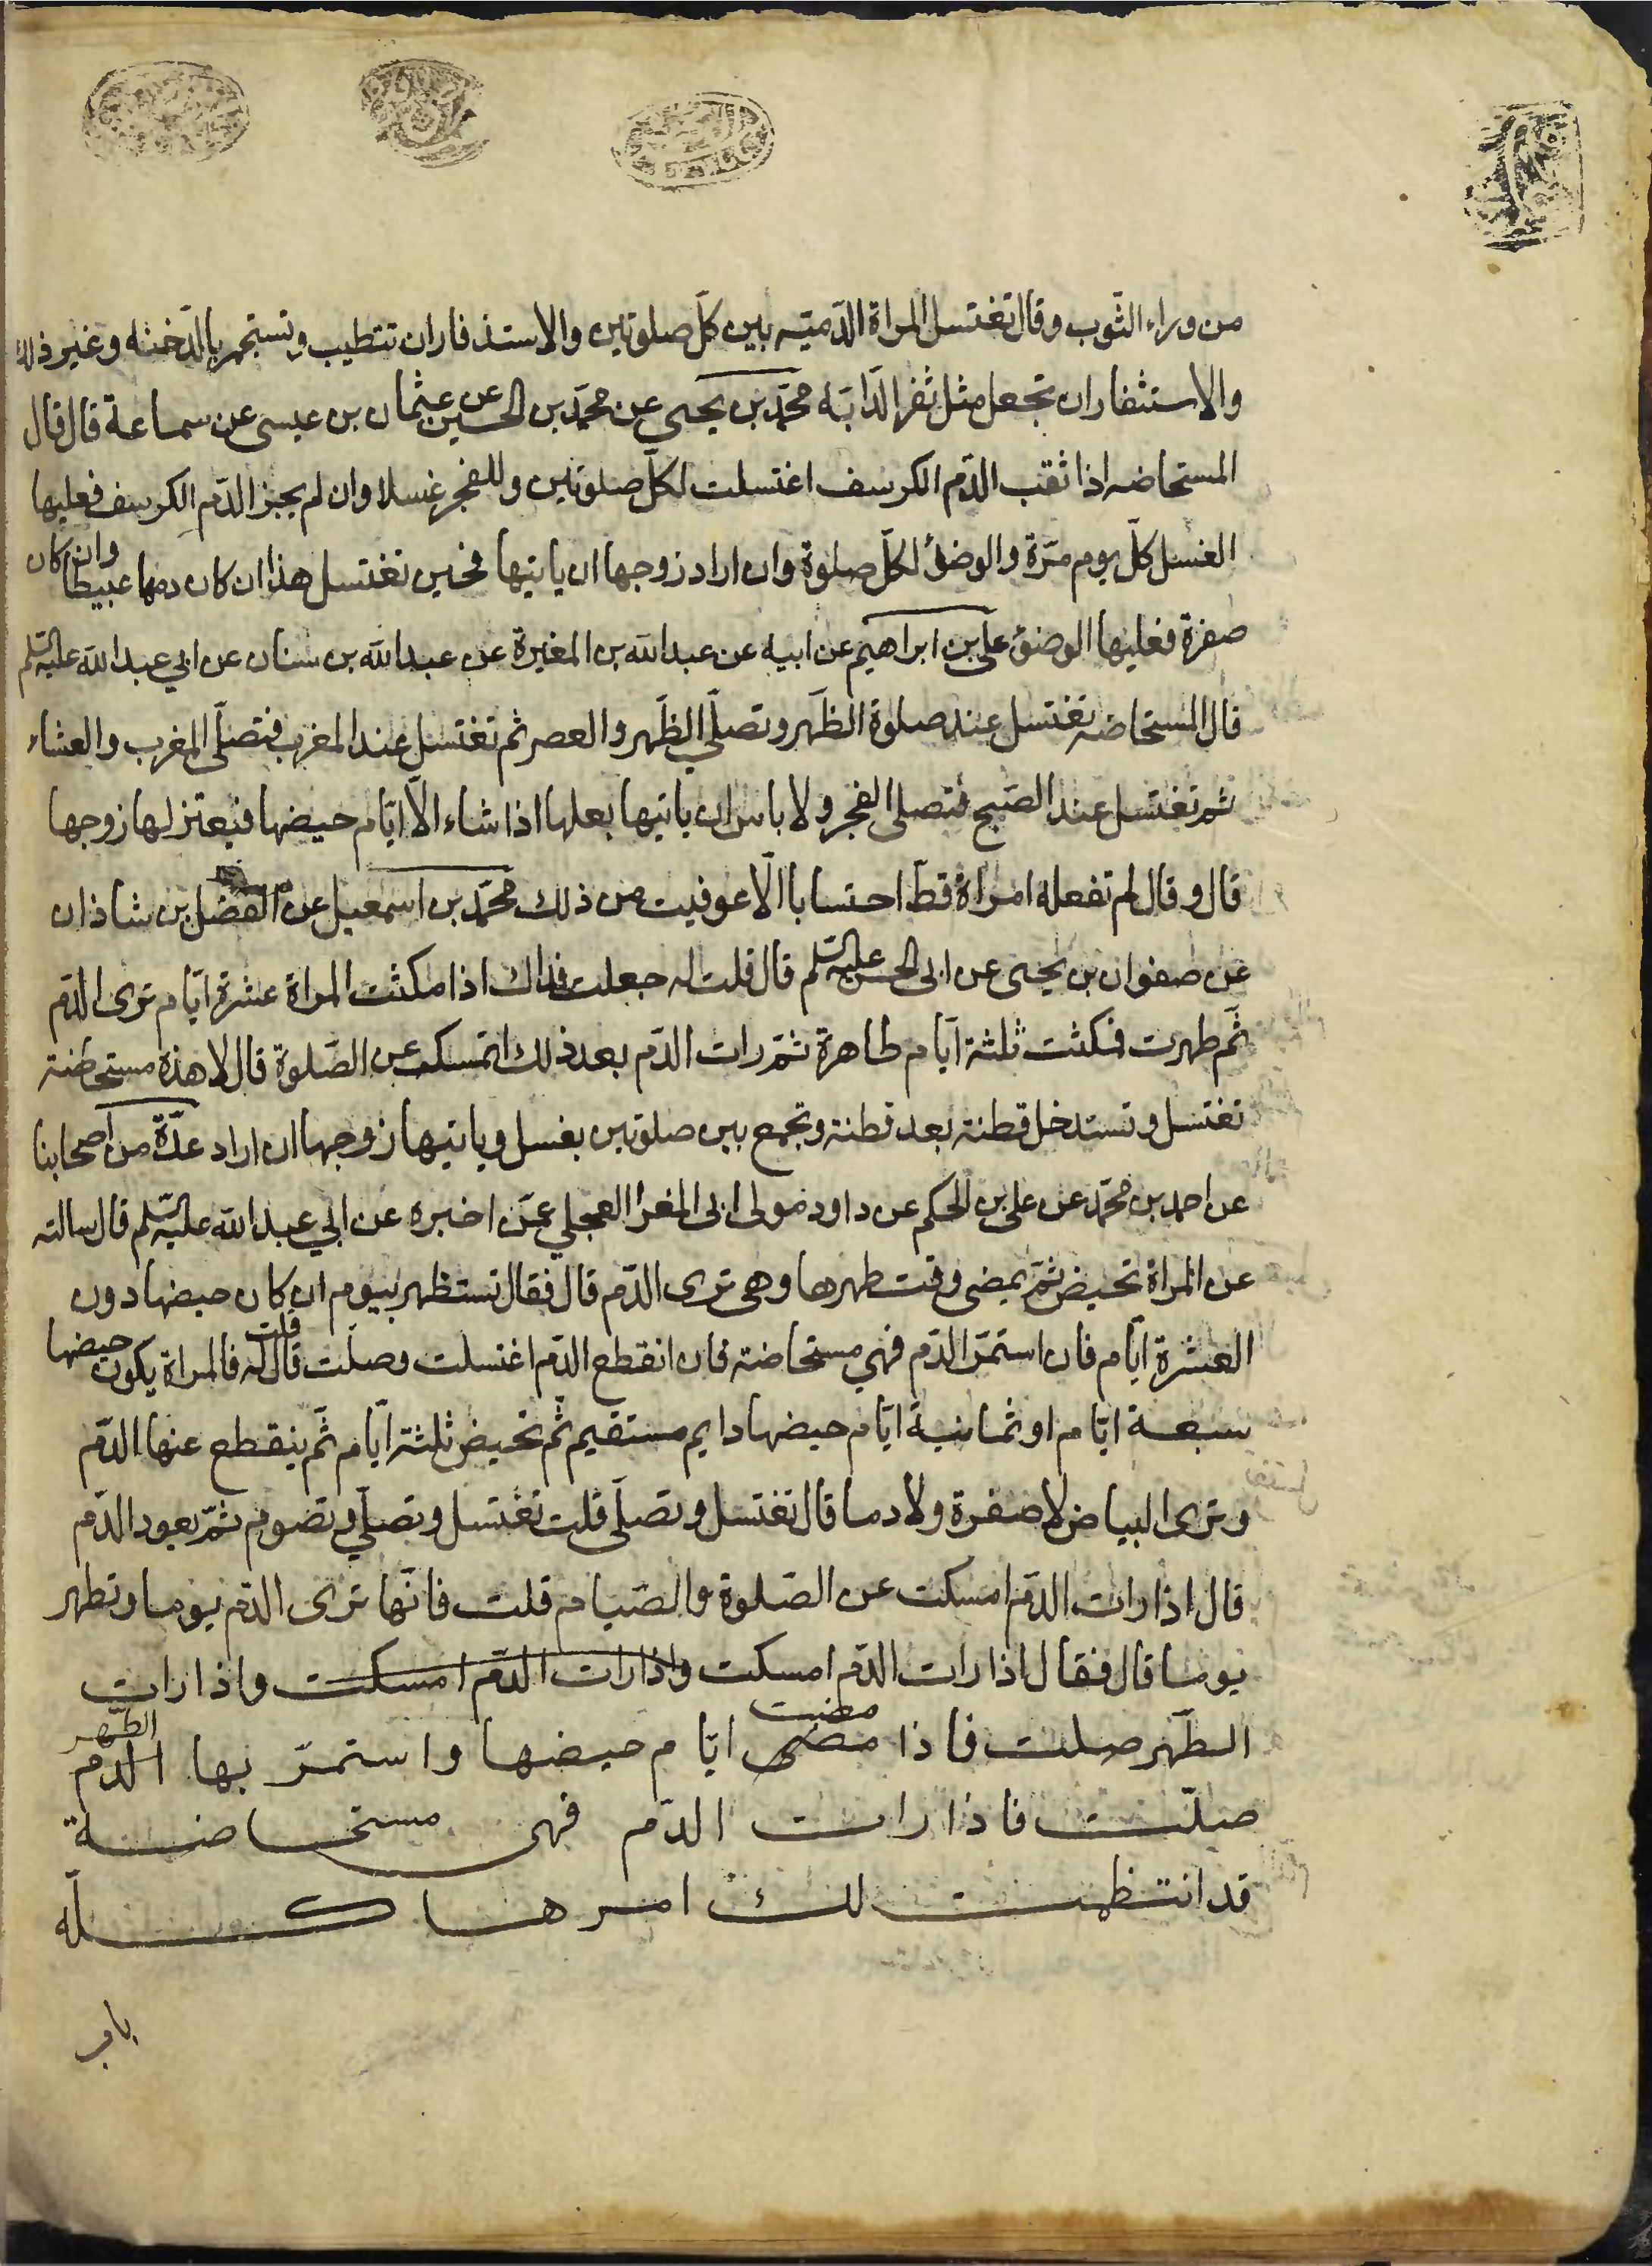 من وراء الثّوب وقال تغتسل المراة الدّميّه بين كلّ صلوتين والاستذفار ان تتطيب وتستجمر بالدّخنه وغير ذلك
والاستثفار ان تجعل مثل ثفر الدّابّه محمّد بن يحيى عن محمّد بن الحسين عن عثمان بن عيسى عن سماعة قال قال
المستحاضه اذا ثقب الدّم الكرسف اغتسلت لكلّ صلوتين وللفجر غسلا وان لم يجز الدّم الكرسف فعليها
الغسل كلّ يوم مرّة والوضؤ لكلّ صلوة وان اراد زوجها ان ياتيها فحين تغتسل هذا ان كان دمها عبيطا وان كان
صفرة فعليها الوضؤ على بن ابراهيم عن ابيه عن عبدالله بن المغيرة عن عبدالله بن سنان عن ابي عبدالله عليه السّلم
قال المستحاضه تغتسل عند صلوة الظّهر وتصلّي الظّهر والعصر ثم تغتسل عند المغرب فتصلّى المغرب والعشاء
ثم تغتسل عند الصّبح فتصلى الفجر ولا باس ان ياتيها بعلها اذا شاء الّا ايّام حيضها فيعتزلها زوجها
قال وقال لم تفعله امراة قطّ احتسابا الّا عوفيت من ذلك محمّد بن اسمعيل عن الفضل بن شاذان
عن صفوان بن يحيى عن ابى الحسن عليه السّلم قال قلت له جعلت فداك اذا مكثت المراة عشرة ايّام ترى الدّم
ثّم طهرت فمكثت ثلثة ايّام طاهرة ثمّ رات الدّم بعد ذلك اتمسك عن الصّلوة قال لا هذه مستحاضة
تغتسل وتستدخل قطنة بعد قطنة وتجمع بين صلوتين بغسل وياتيها زوجها ان اراد عدّة من اصحابنا
عن احمد بن محمّد عن على بن الحكم عن داود مولى ابى المغرا العجلي عمّن اخبره عن ابي عبدالله عليه السّلم قال سالته
عن المراة تحيض ثمّ يمضى وقت طهرها وهى ترى الدّم قال فقال تستظهر بيوم ان كان حيضها دون
العشرة ايّام فان استمرّ الدّم فهي مستحاضة فان انقطع الدّم اغتسلت وصلّت قال قلت له فالمراة يكون حيضها
سبعة ايّام او ثمانية ايّام حيضها دايم مستقيم ثّم تحيض ثلثة ايّام ثّم ينقطع عنها الدّم
وترى البياض لا صفرة ولا دما قال تغتسل وتصلّى قلت تغتسل وتصلّي وتصوم ثمّ يعود الدّم
قال اذا رات الدّم امسكت عن الصّلوة والصّيام قلت فانّها ترى الدّم يوما وتطهر
يوما قال فقال اذا رات الدّم امسكت واذا رات الدّم امسكت واذا رات
الطّهر صلت فاذا مضى مضت ايّام حيضها واستمرّ بها الدّم الطّهر
صلّت فاذا رات الدّم فهى مستحاضة
قد انتظمت لك امرها كلّه
باب